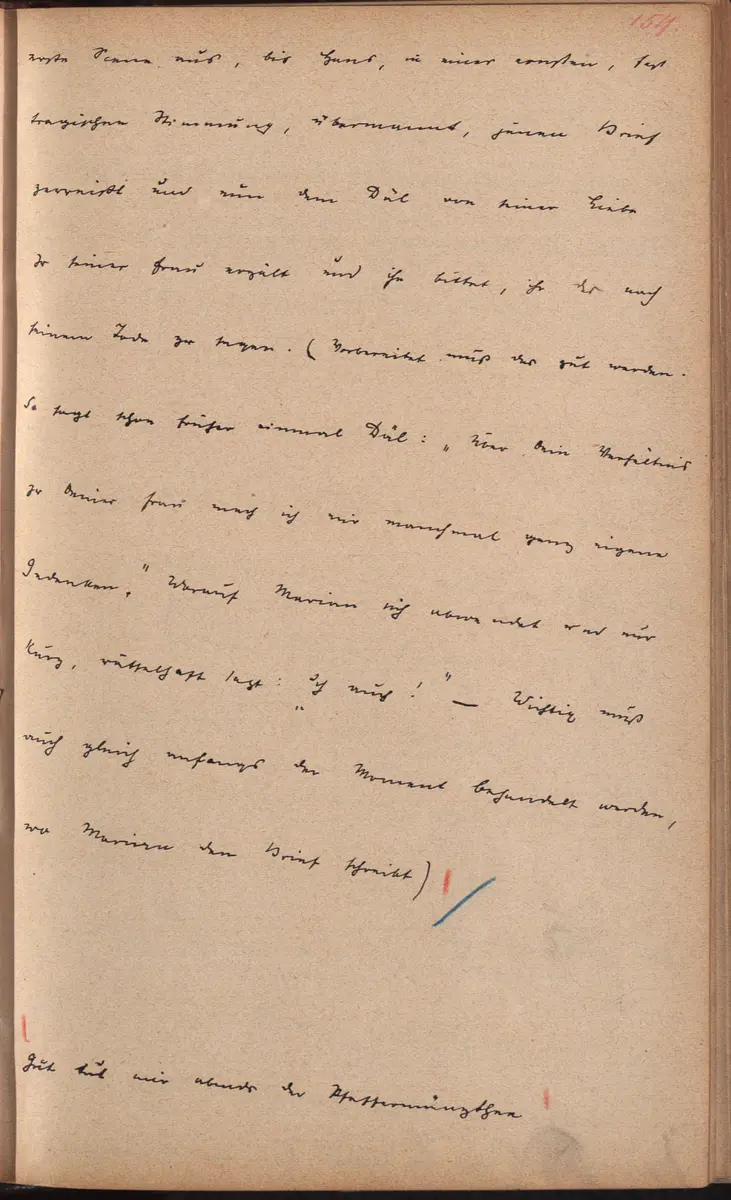 154.
erste Scene aus, bis Hans, in einer ernsten, fast
tragischen Stimmung, übermannt, jenen Brief
zerreißt und nun dem Däl von seiner Liebe
zu seiner Frau erzält und ihn bittet, ihr das nach
seinem Tode zu sagen. (Vorbereitet muß das gut werden.
So sagt schon früher einmal Däl: „Über Dein Verhältnis
zu Deiner Frau mach ich mir manchmal ganz eigene
Gedanken." Worauf Marian sich abwendet und nur
kurz, rättselhaft sagt: „Ich auch!" – Wichtig muß
auch gleich anfangs der Moment behandelt werden,
wo Marian den Brief schreibt)
Gut tut mir abends der Pfeffermünzthee